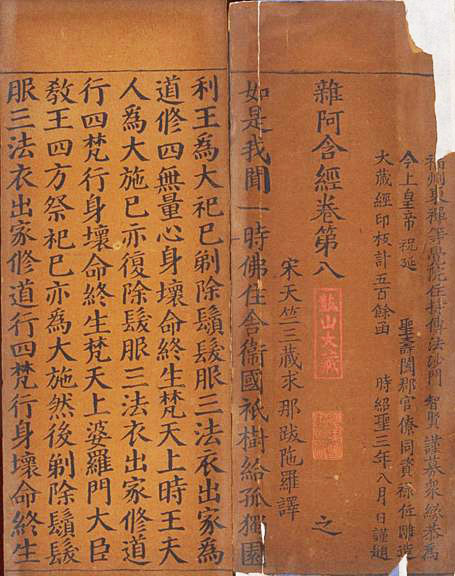 福州東禪等覺院住持傳法沙門 智賢 謹募衆緣恭為
今上皇帝祝延 聖壽闔郡官僚同資祿位雕造
大藏經印板計五百餘函 時紹聖三年八月日謹題
雜阿含經卷第八 之
鼓山大藏
宋天竺三藏求那跋陁羅譯
如是我聞一時佛住舍衛國祇樹給孤獨園
利王為大祀已剃除鬚髮服三法衣出家為
道修四無量心身壞命終生梵天上時王夫
人為大施已亦復除髮服三法衣出家修道
行四梵行身壞命終生梵天上婆羅門大臣
教王四方祭祀已亦為大施然後剃除鬚髮
服三法衣出家修道行四梵行身壞命終生